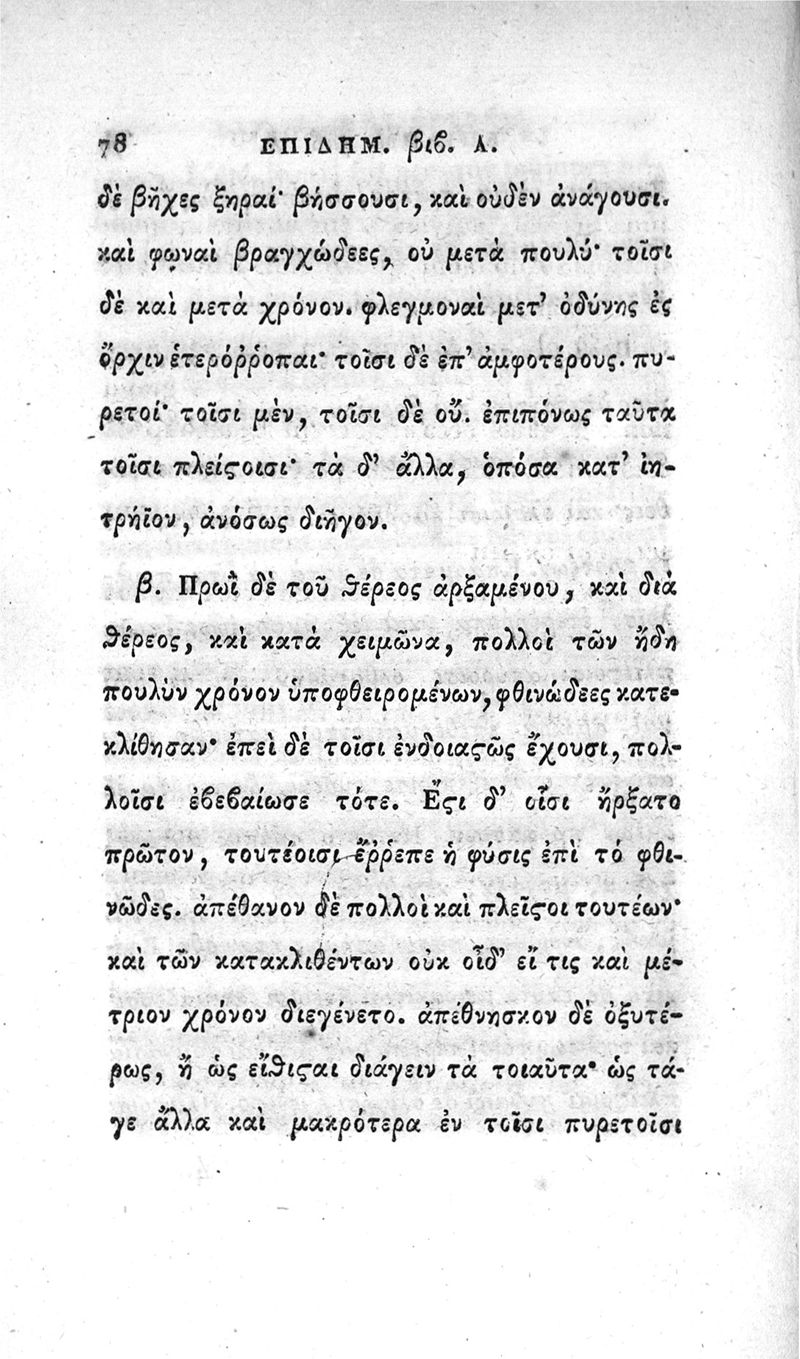 78 ΕΠΙΔΗΜ. βιβ. Α.
δὲ βῆχες ξηραί· βήσσουσι, καὶ οὐδὲν ἀνάγουσι.
καὶ φωναὶ βραγχώδεες, οὐ μετὰ πουλύ· τοῖσι
δὲ καὶ μετὰ χρόνον. φλεγμοναὶ μετ’ ὀδύνης ἐς
ὄρχιν ἑτερόῤῥοπαι· τοῖσι δὲ ἐπ’ ἀμφοτέρους. πυ-
ρετοί· τοῖσι μὲν, τοῖσι δὲ οὔ. ἐπιπόνως ταῦτα
τοῖσι πλείϛοισι· τὰ δ’ ἄλλα, ὁπόσα κατ’ ἰη-
τρήϊον, ἀνόσως διῆγον.
β. Πρωῒ δὲ τοῦ ϑέρεος ἀρξαμένου, καὶ διὰ
ϑέρεος, καὶ κατὰ χειμῶνα, πολλοὶ τῶν ἤδη
πουλὺν χρόνον ὑποφθειρομένων, φθινώδεες κατε-
κλίθησαν· ἐπεὶ δὲ τοῖσι ἐνδοιαϛῶς ἔχουσι, πολ-
λοῖσι ἐβεβαίωσε τότε. Εϛι δ’ οἷσι ἤρξατο
πρῶτον, τουτέοισι ἔῤῥεπε ἡ φύσις ἐπὶ τὸ φθι-
νῶδες. ἀπέθανον δὲ πολλοὶ καὶ πλεῖϛοι τουτέων·
καὶ τῶν κατακλιθέντων οὐκ οἶδ’ εἴ τις καὶ μέ-
τριον χρόνον διεγένετο. ἀπέθνησκον δὲ ὀξυτέ-
ρως, ἢ ὡς εἴϑιϛαι διάγειν τὰ τοιαῦτα· ὡς τά-
γε ἄλλα καὶ μακρότερα ἐν τοῖσι πυρετοῖσι